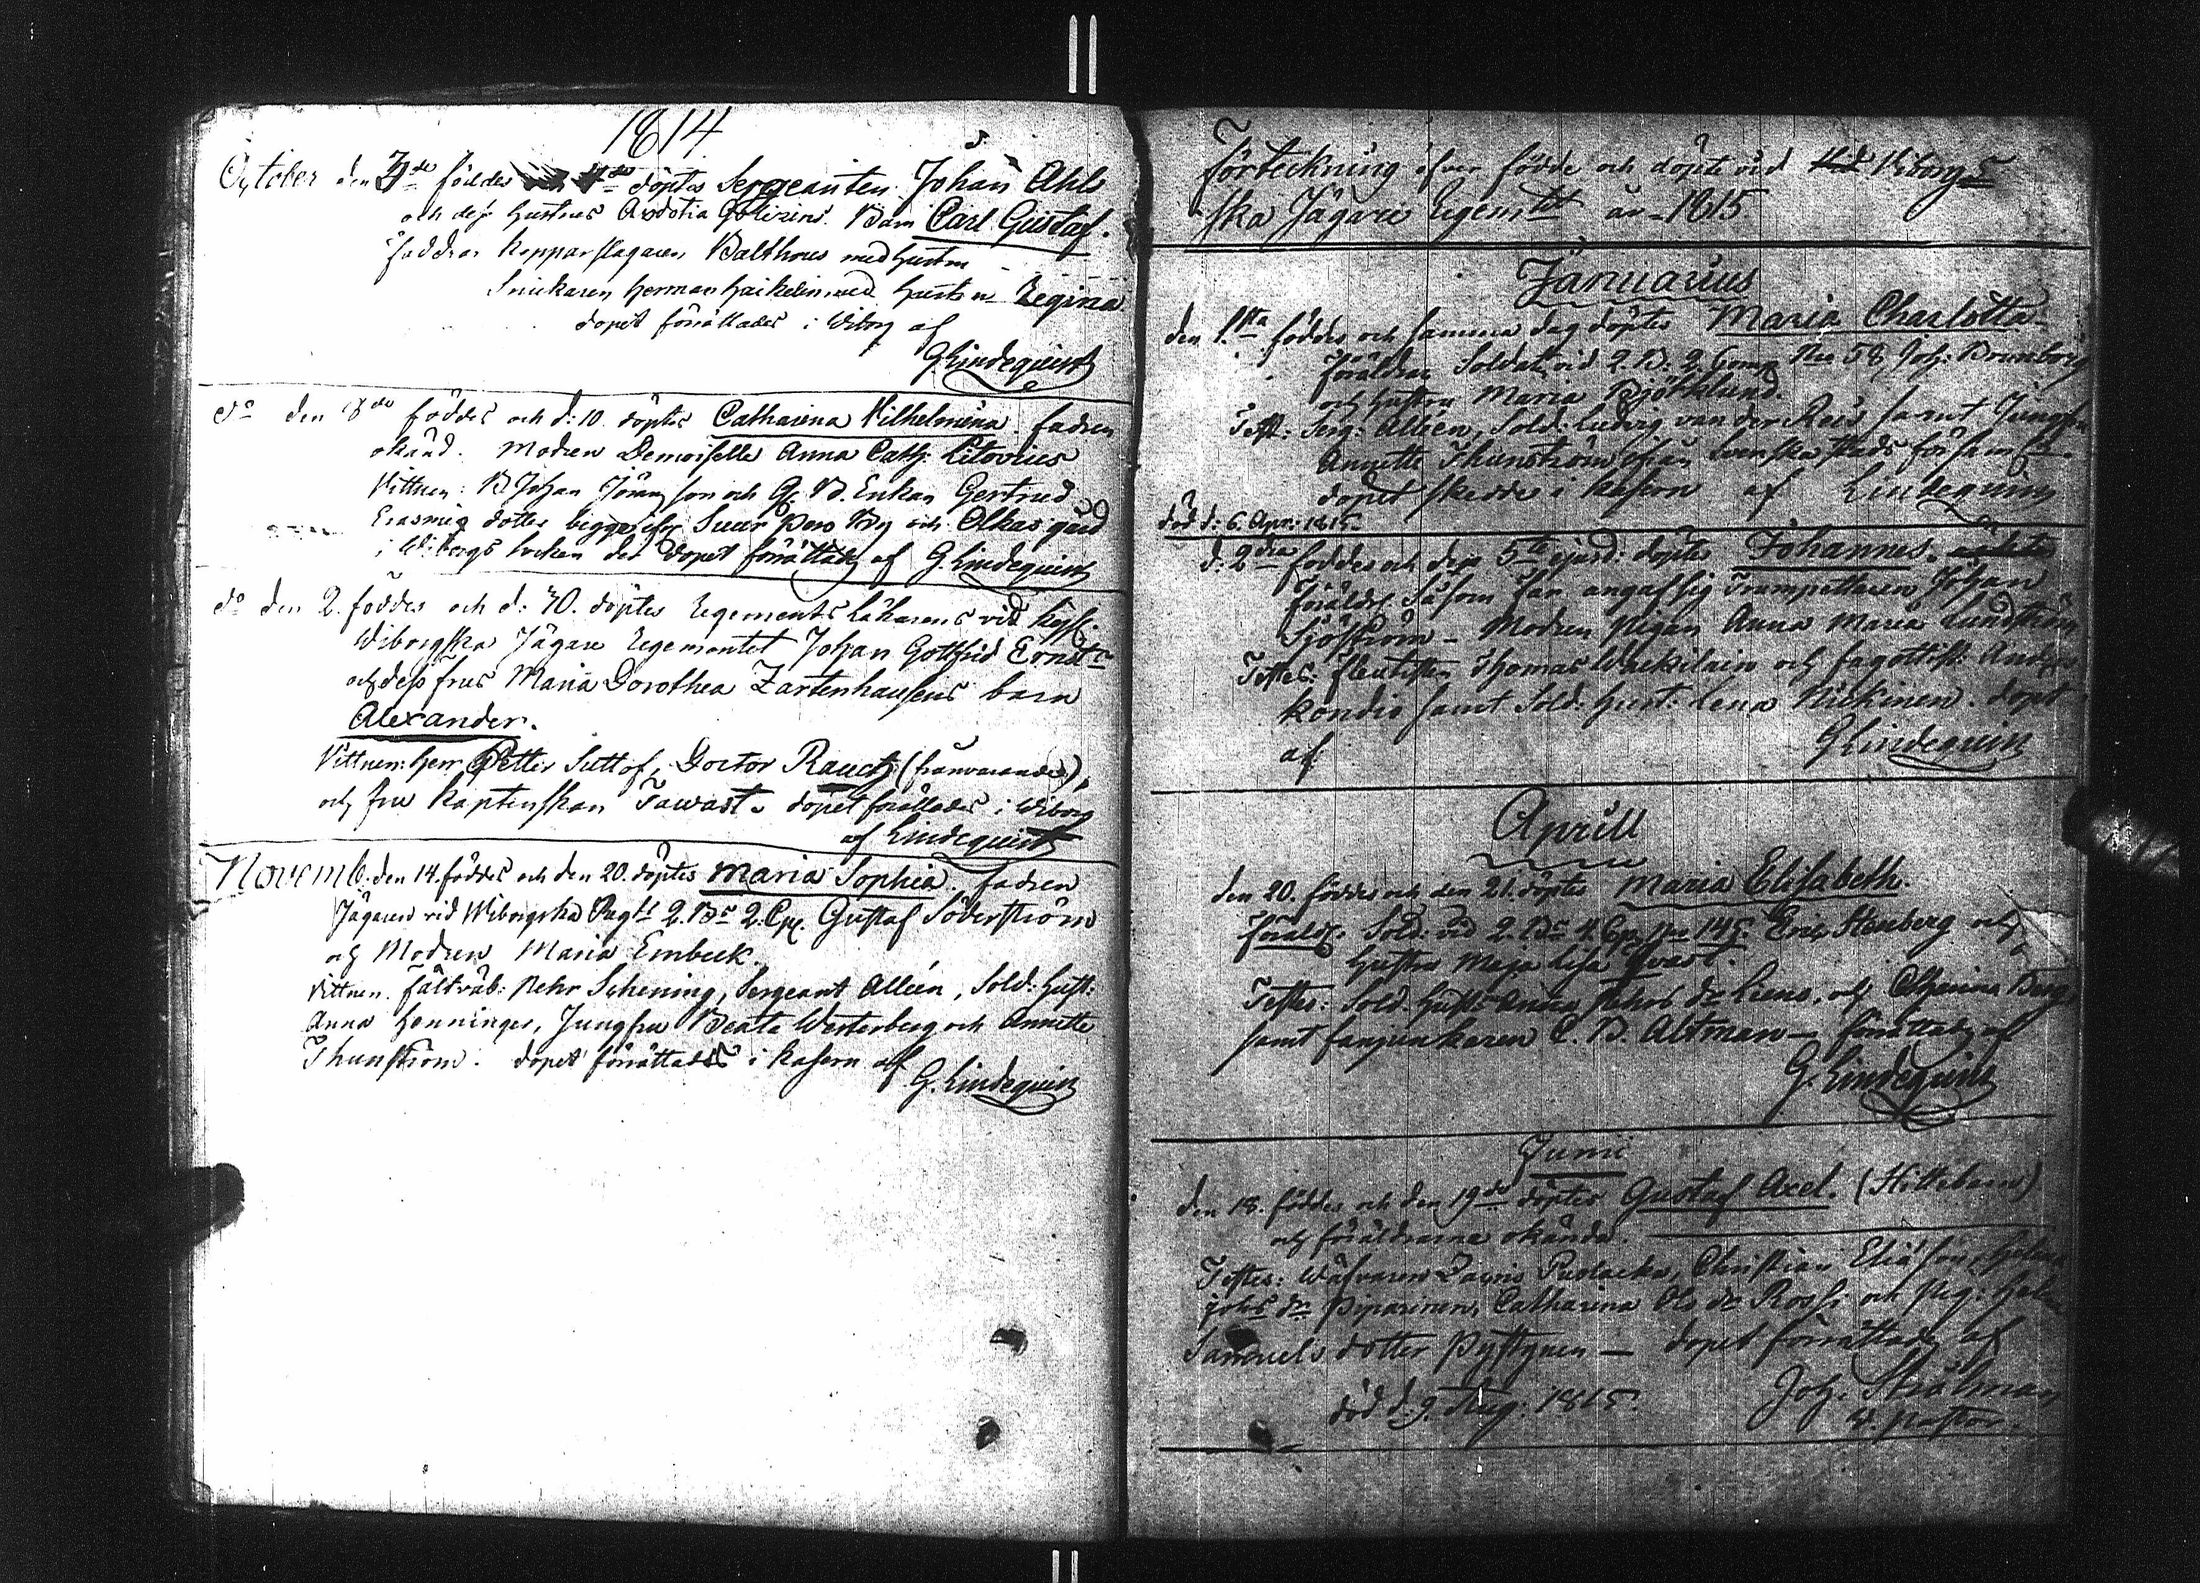 1814
October den 3de föddes och 4de döptes Sergeanten Johan Ahls
och dess hustrus Avdotia Barn Carl Gustaf.
faddrar kopparslagaren Balthous med hustru
Snickaren Herman Haikelin med hustru Regina
dopet förrättades i Wiborg af
G Lindequist
do den 8de föddes och d: 10. döptes Catharina Vilhelmina. fadren
okänd. Modren Demoiselle Anna Cath: Litovius
Vittnen: B. Johan Jöransson och Enkan Gertrud
Erasmi dotter begge ifr. Suur Pero By och Olkas gård
i Wiborgs Socken der dopet förättades af G. Lindequist
do den 2. föddes och d: 10. döptes Regements Läkarens vid Kejs.
Wiborgska Jägare Regementet Johan Gottfrid Ernst
och dess frus Maria Dorothea Zartenhausens barn
Alexander.
Vittnen: Herr Petter Suttof, Doctor Rauch (frånvarande),
och fru Kaptenskan Tawast. dopet förättades i Wiborg
af Lindequist
Novemb. den 14. föddes och den 20. döptes Maria Sophia. fadren
Jägaren vid Wiborgska Regtt 2. Bn 2. Cp. Gustaf Söderström
och Modren Maria Embeck.
Vittnen. Fältväb: Pehr Schening, Sergeant Alleen, Sold: hust:
Anna Henninger, Jungfru Beata Westerberg och Annette
Thunström. dopet förättades i kasern af
G. Lindequist
Förteckning öfver födde och döpte vid Viborg
ska Jägare Regemtet år 1815
Januarius
den 1sta föddes och samma dag döptes Maria Charlotta
föräldrar Soldat vid 2. B. 2. Comp No 58 Joh: Brunberg
och hustru Maria Björklund.
Test: Serg: Alleen, Sold: Ludvig van der Reis samt Jungfru
Annette Thunström ifrån Svenska Stads församl.
dopet skedde i kasern af Lindequist
död d: 6. Apr: 1815
d: 2dra föddes och den 5te ejusd: döptes Johannes.
föräldr. Såsom far angaf sig Trumpettaren Johan
Sjöström - Modren Pigan Anna Maria Lundström
Testes: fleutisten Thomas Wackilain och fagottist: Anders
Kondie samt Sold: hust: Lena Nickinen. dopet
af G Lindequist
Aprill
den 20. föddes och den 21. döptes Maria Elisabeth.
föräldr: Sold: vid 2. Bn 4. Cp. No 145. Eric Stenberg och
hustru Maja Lisa Qvast.
Testes: Sold: hust: dr Liens, och
samt fanjunkaren C. B. Altman - förättades af
G. Lindequist
Junii
den 18. föddes och den 19de döptes Gustaf Axel. (Hittebarn)
och föräldrarne okände.
Testes: Wäfvaren Christian Eliasson,
dr Piparinen, Catharina Ols dr Rossi och Pig:
Samuels dotter Pystynen - dopet förrättades af
död d: 9. Aug: 1815. Joh: Stråhlman
v. Pastor.